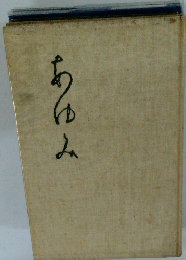 あゆみ